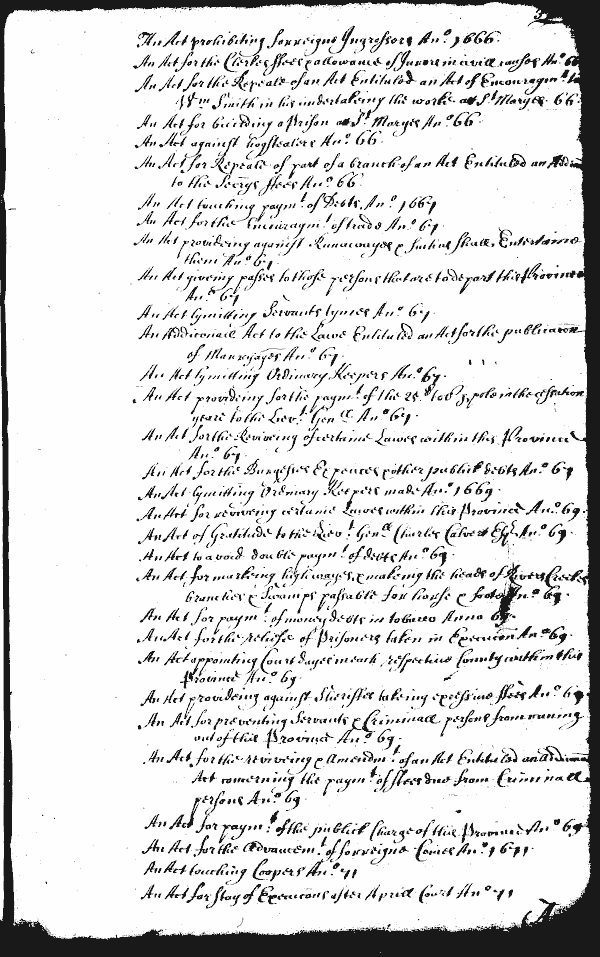 An Act prohibiting forreigne Ingrossers Ano. 1666.
An Act for the Clerkes ffees & allowance of Jurors in civill causes Ano. 66
An Act for the Repeale of an Act Entituled an Act of Encouragmt. to
Wm. Smith in his undertaking the worke at St. Maryes. 66.
An Act for building a Prison at St. Maryes Ano. 66.
An Act against hogstealers Ano. 66.
An Act for Repeale of part of a branch of an Act Entituled an
to the Secrys ffees Ano. 66
An Act touching paymt. of Debts Ano. 1667
An Act for the Encouragmt. of trade Ano. 67.
An Act provideing against Runawayes & such as shall Entertaine
them Ano. 67.
An Act giveing passes to those persons that are to depart this Province
Ano. 67
An Act lymitting Servants tymes Ano. 67.
An Addiconall Act to the Lawe Entituled an Act for the publicacon
of Marryages Ano. 67.
An Act lymitting Ordinary Keepers Ano. 67.
An Act provideing for the paymt. of the 25 lb tob p pole in the
yeare to the Lievt. Genll. Ano. 67.
An Act for the Reviveing of certaine Lawes within this Province
Ano. 67
An Act for the Burgesses Expences & other publick debts Ano. 67
An Act lymitting Ordinary Keepers made Ano. 1669.
An Act for reviveing certaine Lawes within this Province Ano. 69.
An Act of Gratitude to the Lievt. Genll. Charles Calvert Esqr. Ano. 69.
An Act to avoid double paymt. of debts Ano. 69.
An Act for marking highwayes & making the heads of Rivers Creekes
branches & Swamps passable for horse & foote Ano. 69.
An Act for paymt. of money debts in tobacco Anno 69.
An Act for the reliefe of Prisoners taken in Execucon Ano. 69.
An Act appointing Court dayes in each respective County within this
Province Ano. 69.
An Act provideing against Sheriffes takeing excessive ffees Ano. 69
An Act for preventing Servants & Criminall persons from running
out of this Province Ano. 69.
An Act for the reviveing & Amendmt. of an Act Entituled an Addiconall
Act concerning the paymt. of ffees due from Criminall
persons Ano. 69.
An Act for paymt. of the publick Charge of this Province Ano. 69
An Act for the Advancemt. of forreigne Coines Ano. 1671.
An Act touching Coopers Ano. 71
An Act for stay of Execucons after Aprill Court Ano. 71